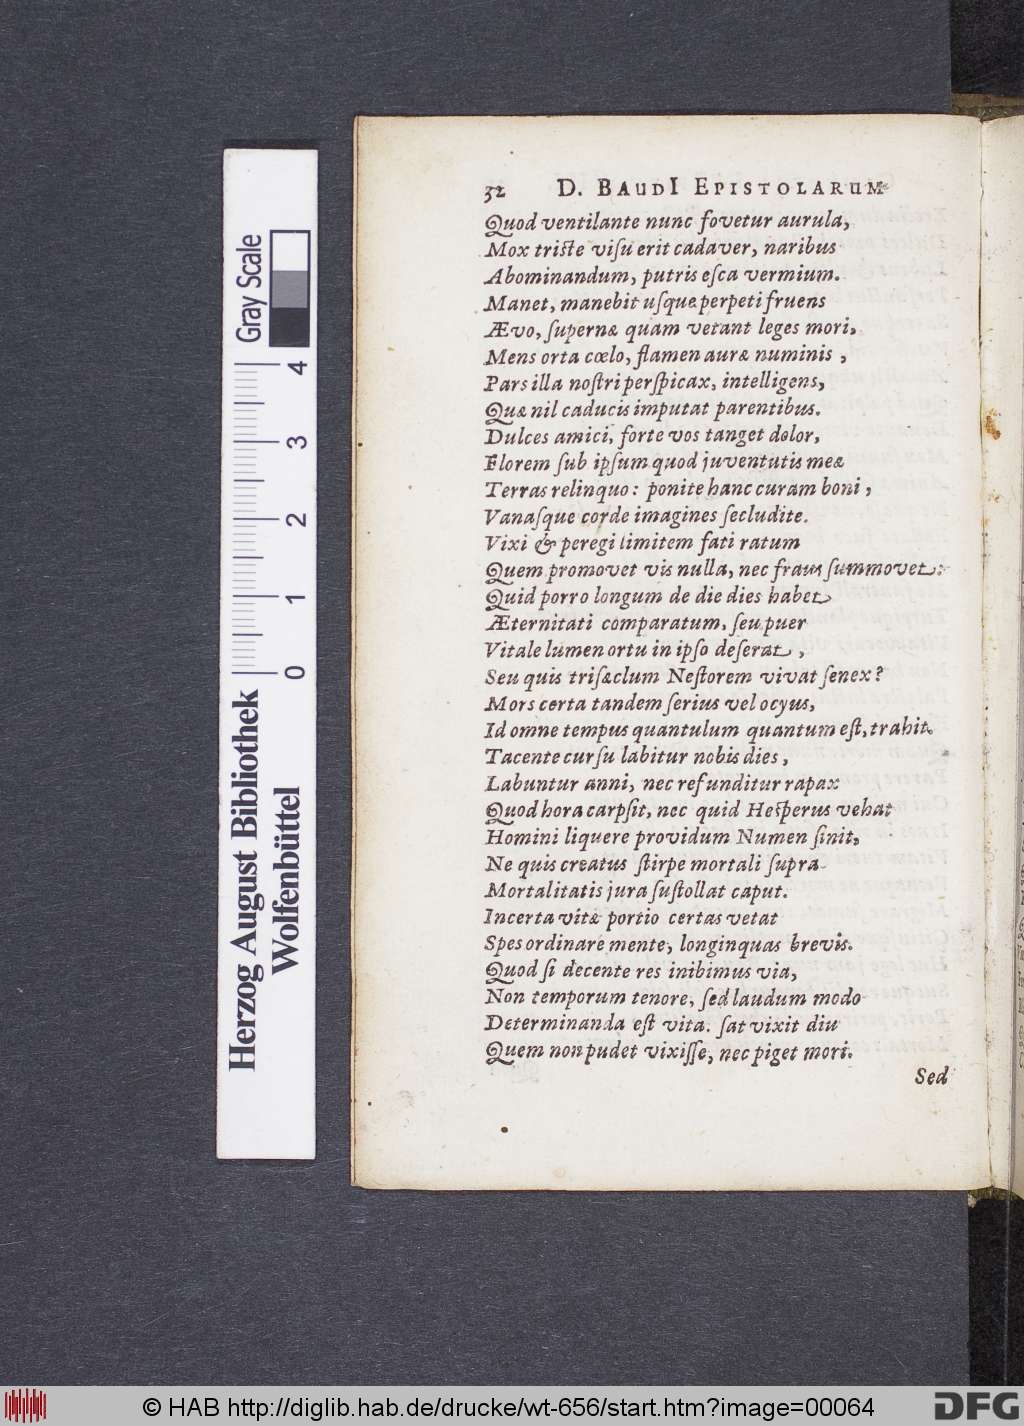 32 D. BAUDI EPISTOLARUM
Quod ventilante nunc fovetur aurula,
Mox triste visu erit cadaver, naribus
Abominandum, putris esca vermium.
Manet, manebit usque perpeti fruens
Ævo, supernæ quam vetant leges mori,
Mens orta cœlo, flamen auræ numinis,
Pars illa nostri perspicax, intelligens,
Quæ nil caducis imputat parentibus.
Dulces amici, forte vos tanget dolor,
Florem sub ipsum quod juventutis meæ
Terras relinquo: ponite hanc curam boni,
Vanasque corde imagines secludite.
Vixi & peregi limitem fati ratum
Quem promovet vis nulla, nec fraus summovet:
Quid porro longum de die dies habet
Æternitati comparatum, seu puer
Vitale lumen ortu in ipso deserat,
Seu quis trisæclum Nestorem vivat senex?
Mors certa tandem serius vel ocyus,
Id omne tempus quantulum quantum est, trahit.
Tacente cursu labitur nobis dies,
Labuntur anni, nec refunditur rapax
Quod hora carpsit, nec quid Hesperus vehat
Homini liquere providum Numen sinit,
Ne quis creatus stirpe mortali supra
Mortalitatis jura sustollat caput.
Incerta vitæ portio certas vetat
Spes ordinare mente, longinquas brevis.
Quod si decente res inibimus via,
Non temporum tenore, sed laudum modo
Determinanda est vita. sat vixit diu
Quem non pudet vixisse, nec piget mori.
Sed
Gray Scale
4
3
2
1
0
Herzog August Bibliothek
Wolfenbüttel
© HAB http://diglib.hab.de/drucke/wt-656/start.htm?image=00064
DFG